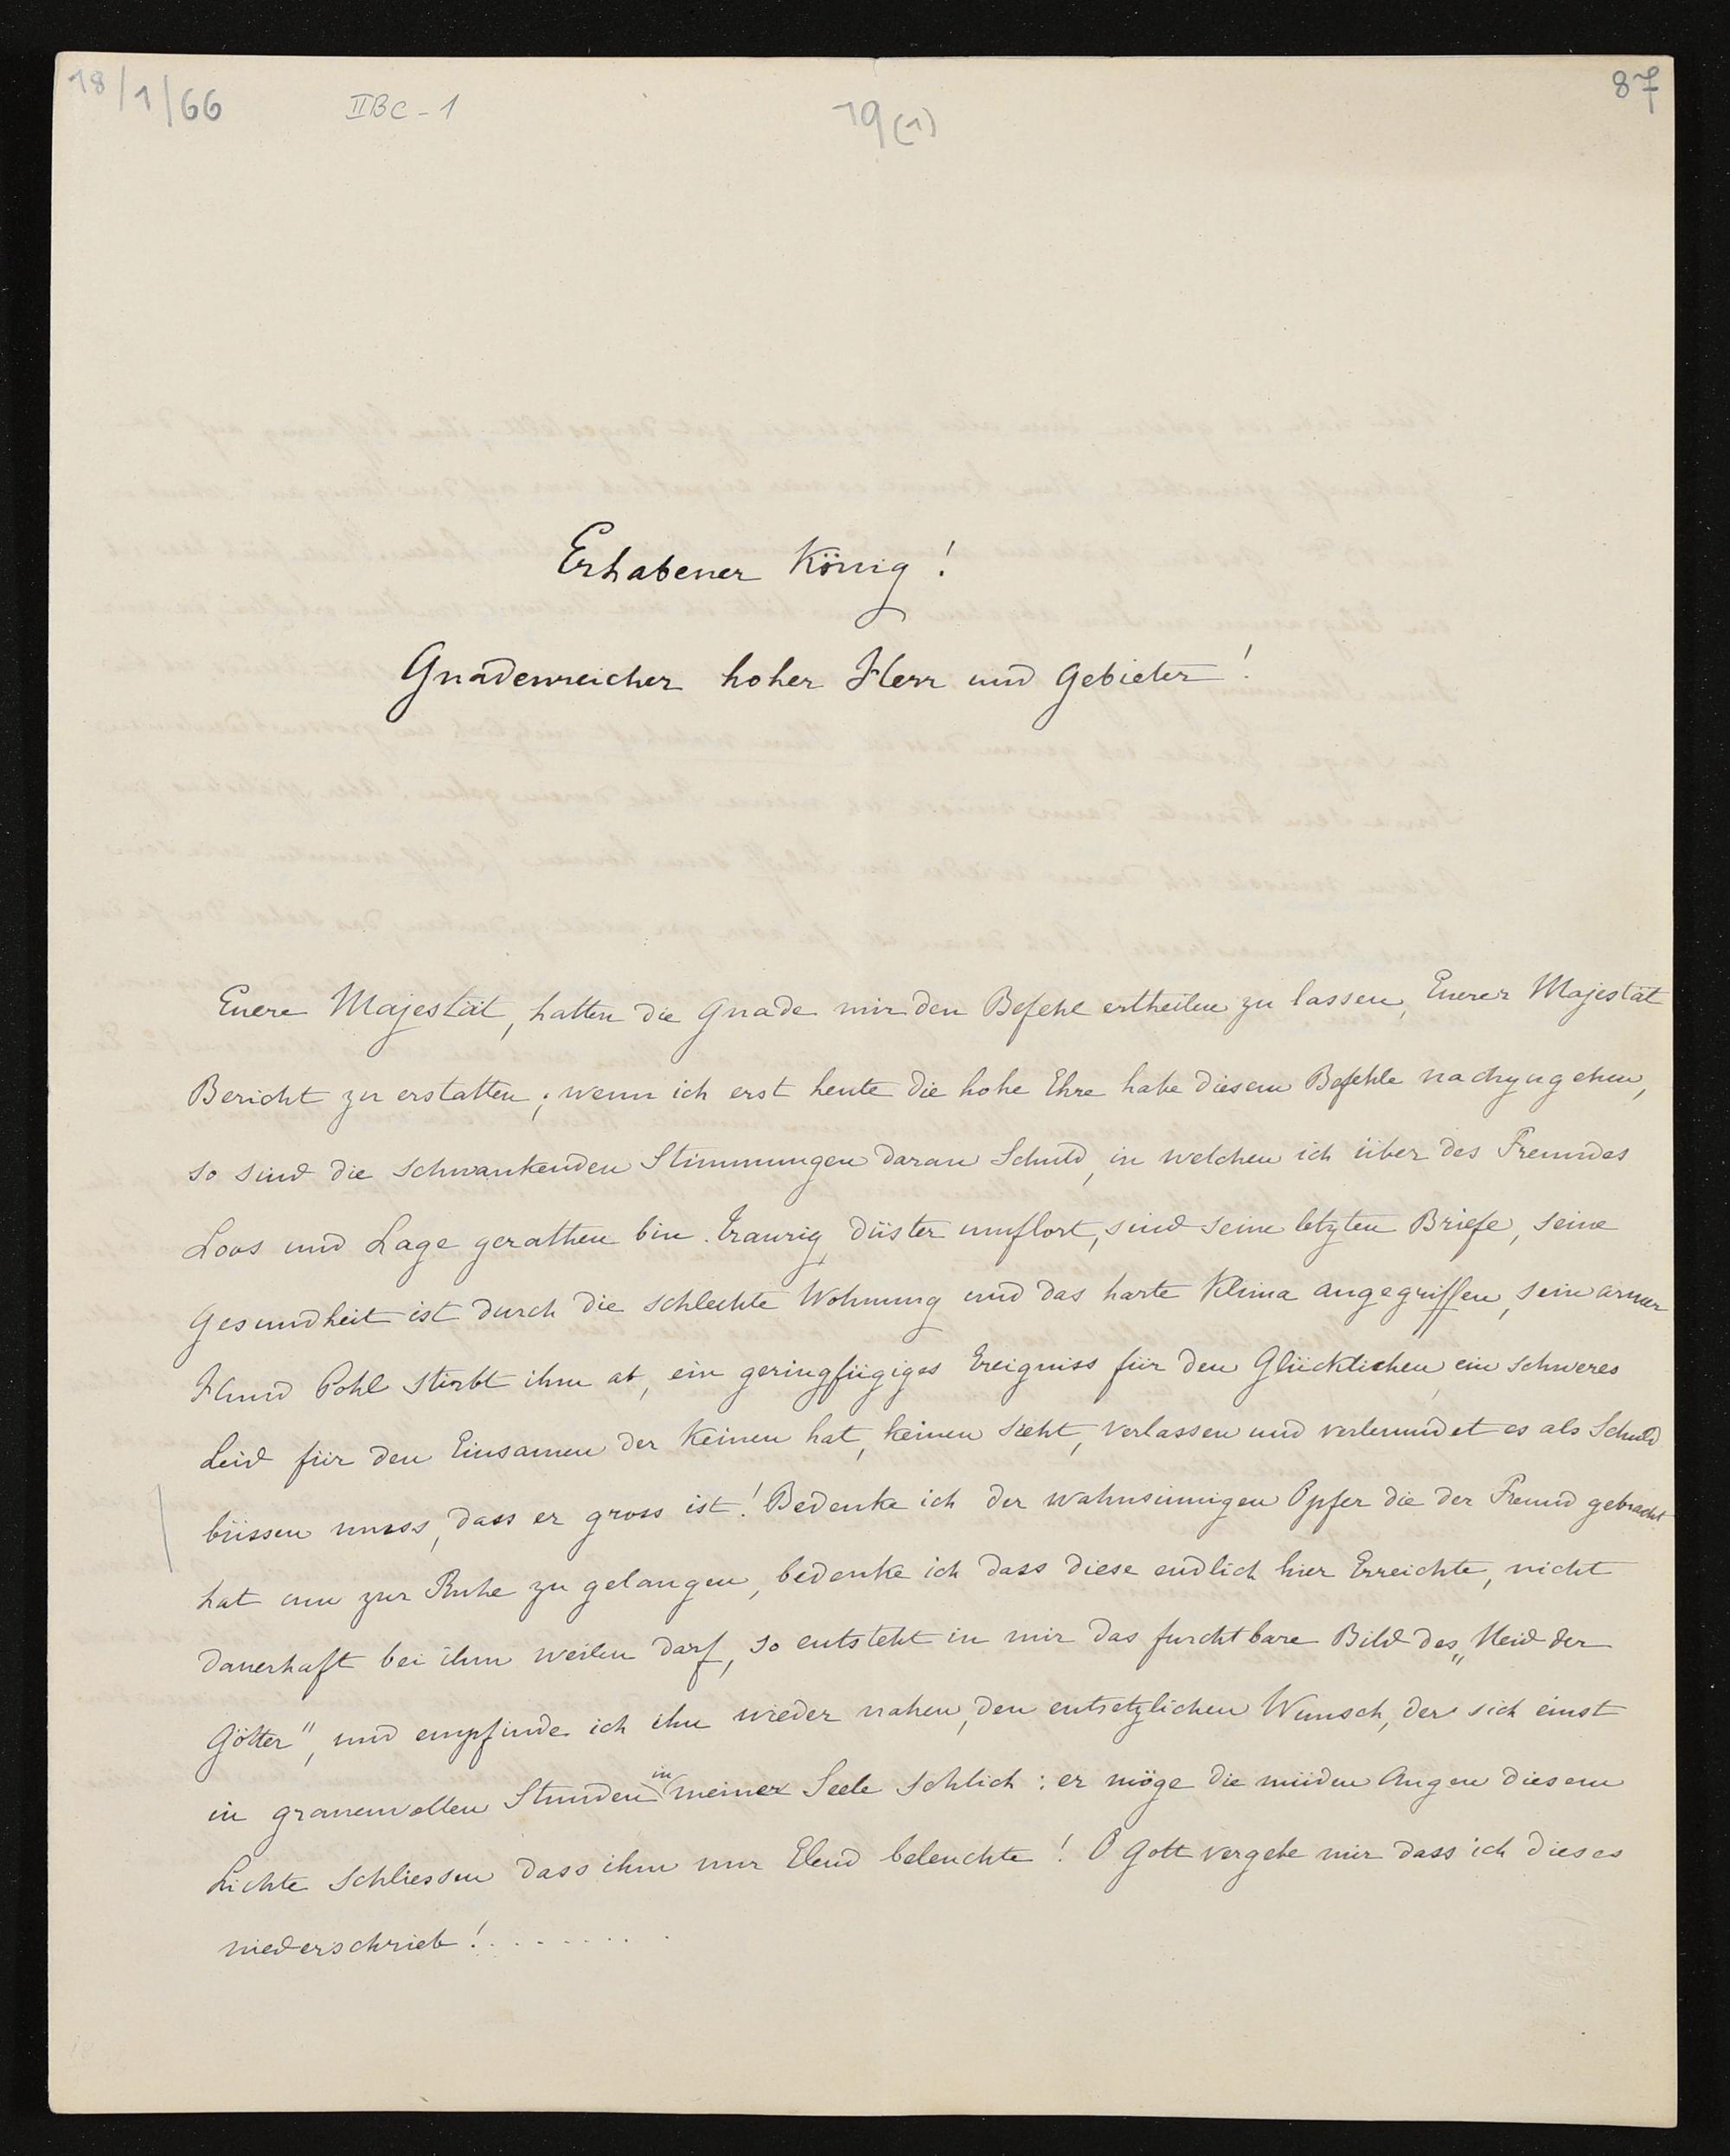 18/1/66 IIBC-1 19(1) 87
Erhabener König!
Gnadenreicher hoher Herr und Gebieter!
Euere Majestät, hatten die Gnade mir den Befehl ertheilen zu lassen, Euerer Majestät
Bericht zu erstatten; wenn ich erst heute die hohe Ehre habe diesem Befehle nachzugehen,
so sind die schwankenden Stimmungen daran Schuld, in welchen ich über des Freundes
Loos und Lage gerathen bin. Traurig, düster umflort, sind seine letzten Briefe, seine
Gesundheit ist durch die schlechte Wohnung und das harte Klima angegriffen, sein armer
Hund Pohl stirbt ihm ab, ein geringfügiges Ereigniss für den Glücklichen, ein schweres
Leid für den Einsamen der Keinen hat, keinen sieht, verlassen und verleumdet es als Schuld
büssen muss, dass er gross ist! Bedenke ich der wahnsinnigen Opfer die der Freund gebracht
hat um zur Ruhe zu gelangen, bedenke ich dass diese endlich hier Erreichte, nicht
dauerhaft bei ihm weilen darf, so entsteht in mir das furchtbare Bild des „Neid der
Götter", und empfinde ich ihn wieder nahen, den entsetzlichen Wunsch, der sich einst
in grauenvollen Stunden in meiner Seele schlich: er möge die müden Augen diesem
Lichte schliessen dass ihm nur Elend beleuchte! O Gott vergebe mir dass ich dieses
niederschrieb!.........